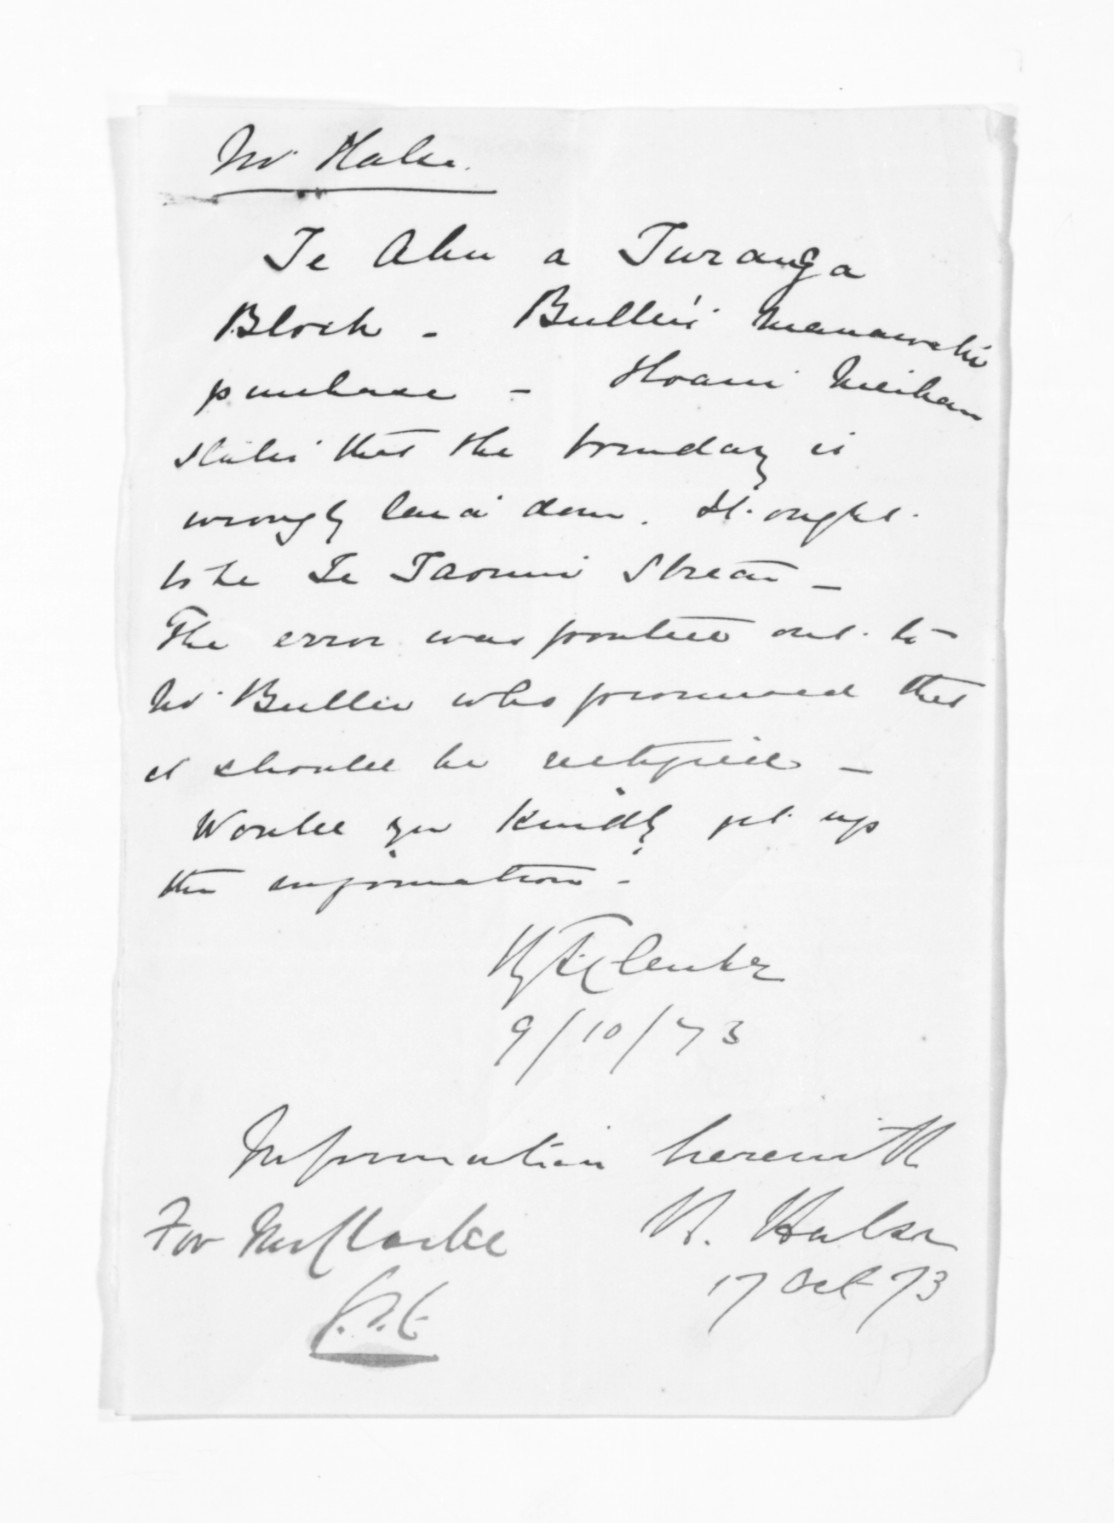 Mr Halse.
Te Ahu a Turanga
Block - Buller's Manawatu
purchase - Hoani Meihana
states that the boundary is
wrongly laid down. It ought
to be Te Taonui Stream -
The error was pointed out to
Mr Buller who promised that
it should be rectified -
Would you kindly get up
the information -
H. T. Clarke
9/10/73
Information herewith
H. Halse
17 Oct 73
For Mr Clarke